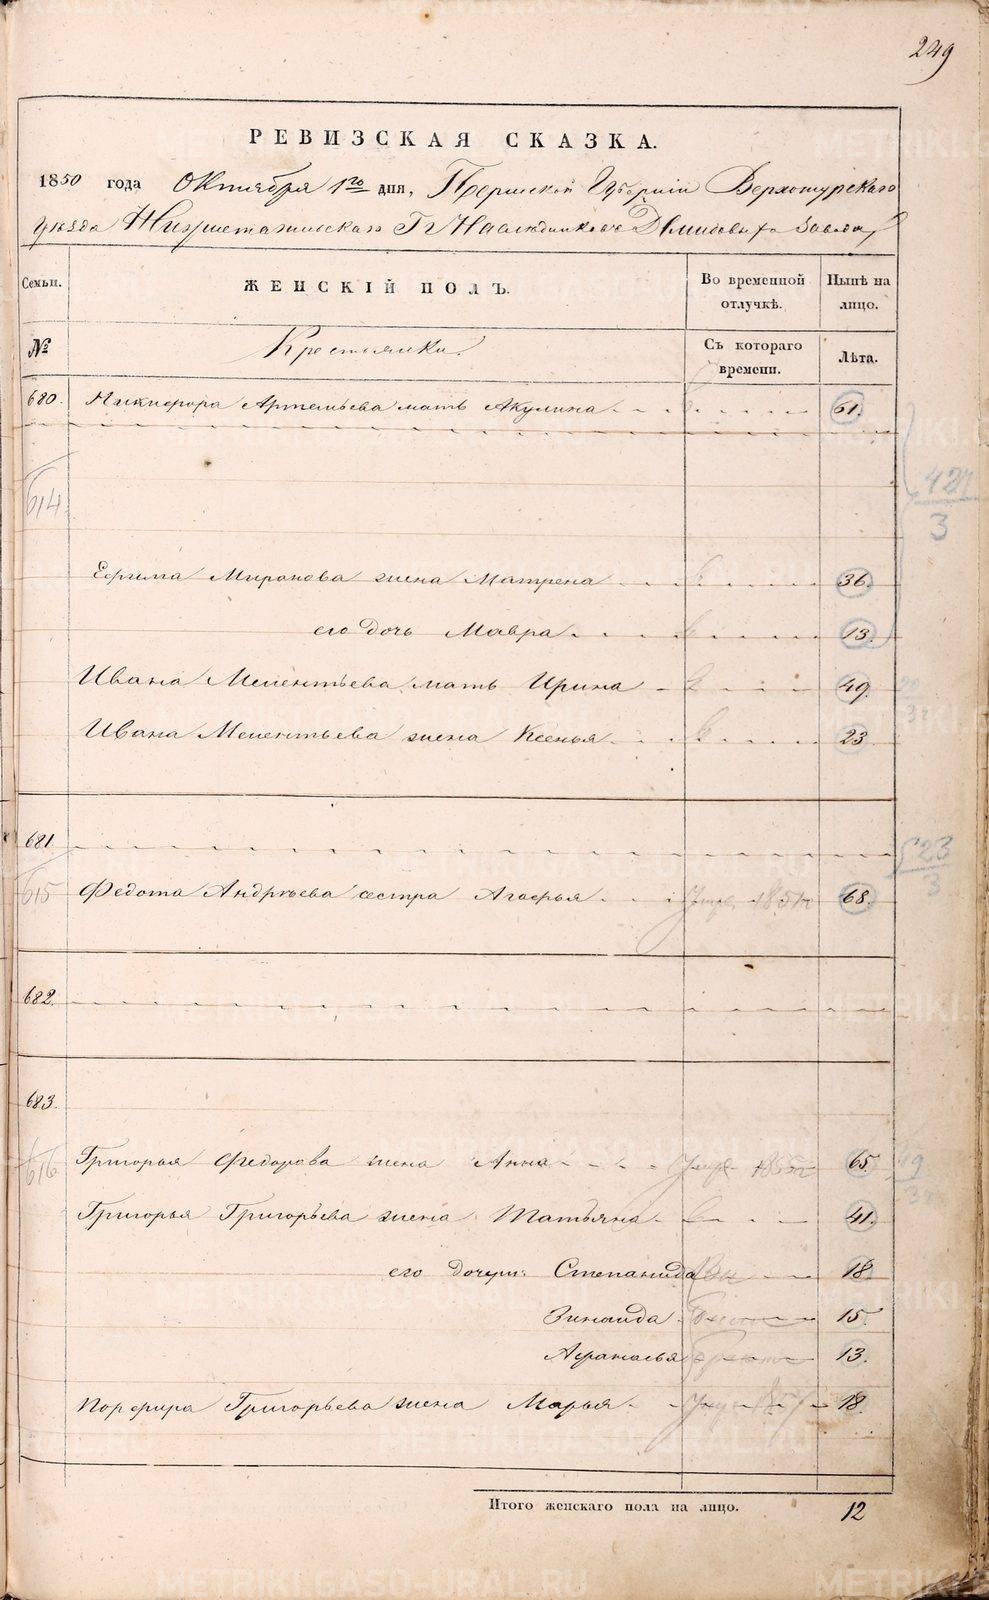 249
РЕВИЗСКАЯ СКАЗКА.
1850 года Октября 1го дня, Пермской Губернии Верхотурскаго
Уезда Нижнетагильскаго Гг Наследниковъ Демидовыхъ завода
Семьи. ЖЕНСКІЙ ПОЛЪ. Во временной отлучкѣ. Нынѣ на лицо.
№ Крестьянки. Съ котораго времени. Лѣта.
680. Никифора Артемьева мать Акулина 61.
427
614 3
Ефима Миронова жена Матрена 36.
его дочь Мавра 13.
Ивана Мелентьева мать Ирина 49.
Ивана Мелентьева жена Ксенья 23
681. 23
615 Федота Андрѣева сестра Агафья 1851 68. 3
682.
683.
616 Григорья Федорова жена Анна 1855 65.
Григорья Григорьева жена Татьяна 41.
его дочери Степанида 18.
Зинаида 15.
Афанасья 13.
Порфира Григорьева жена Марья 18.
Итого женскаго пола на лицо. 12
METRIKI.GASO-URAL.RU